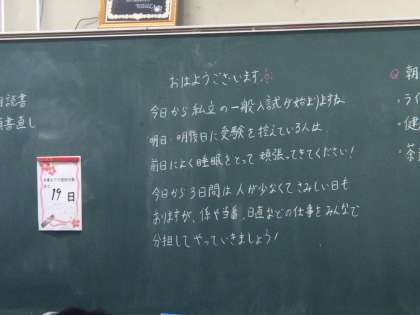 おはようございます。
今日から私立の一般入試が始まりますね
明日・明後日に受験を控えている人は
前日によく睡眠をとって頑張ってきてください！
今日から3日間は人が少なくてさみしい日も
ありますが、係や当番、日直などの仕事をみんなで
分担してやっていきましょう！
19日
朝
・ライ
・健
・茶